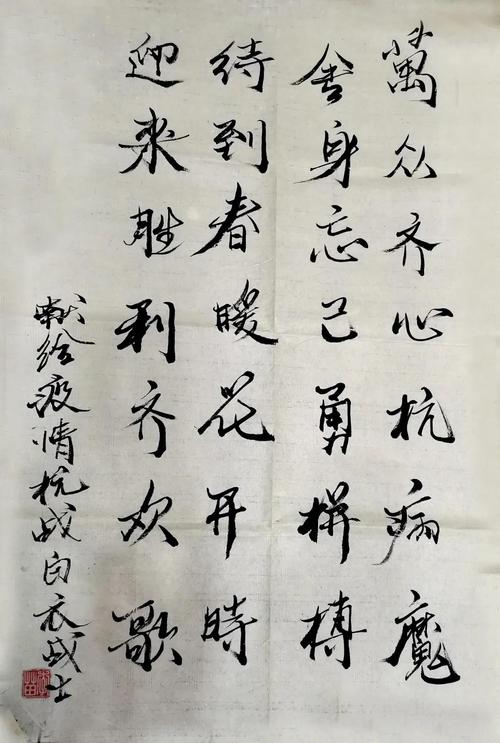 萬众齐心杭病魔
舍身忘己勇拼搏
待到春暖花开時
迎来胜利齐欢歌
献给疫情抗战白衣战士